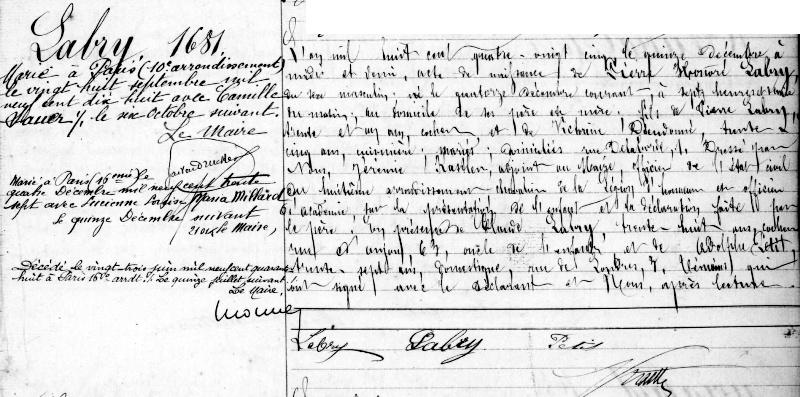 Labry. 1681.
Marié à Paris (10e arrondissement)
le vingt huit septembre mil
neuf cent dix huit avec Camille
le six Octobre suivant.
Le Maire
Marié à Paris (16me) le
quatre Décembre mil neuf cent trente
sept avec Lucienne Louise Maria Millard
le quinze Décembre suivant
Le Maire,
Décédé le vingt-trois juin mil neuf cent quarante
huit à Paris 16e arrdt. Le quinze juillet suivant.
Le Maire.
L'an mil huit cent quatre-vingt cinq le quinze décembre à
midi et demi, acte de naissance de Pierre Honoré Labry,
du sexe masculin, né le quatorze Décembre courant à sept heures
du matin, au domicile de ses père et mère, fils de Pierre Labry,
trente et un ans, cocher et de Victorine Dieudonné, trente
cinq ans, cuisinière, mariés, domiciliés rue 1. Dressé par
Nous, adjoint au Maire, officier de l'État civil
du huitième arrondissement chevalier de la Légion d'honneur et officier
d'académie, sur la présentation de l'enfant et la déclaration faite par
le père: En présence de Claude Labry, trente-huit ans, cocher
rue d'anjou 63, oncle de l'enfant et de Adolphe Petit,
trente-sept ans, domestique, rue de Londres, 7, témoins qui
ont signé avec le déclarant et Nous, après lecture.
Labry Labry Petit